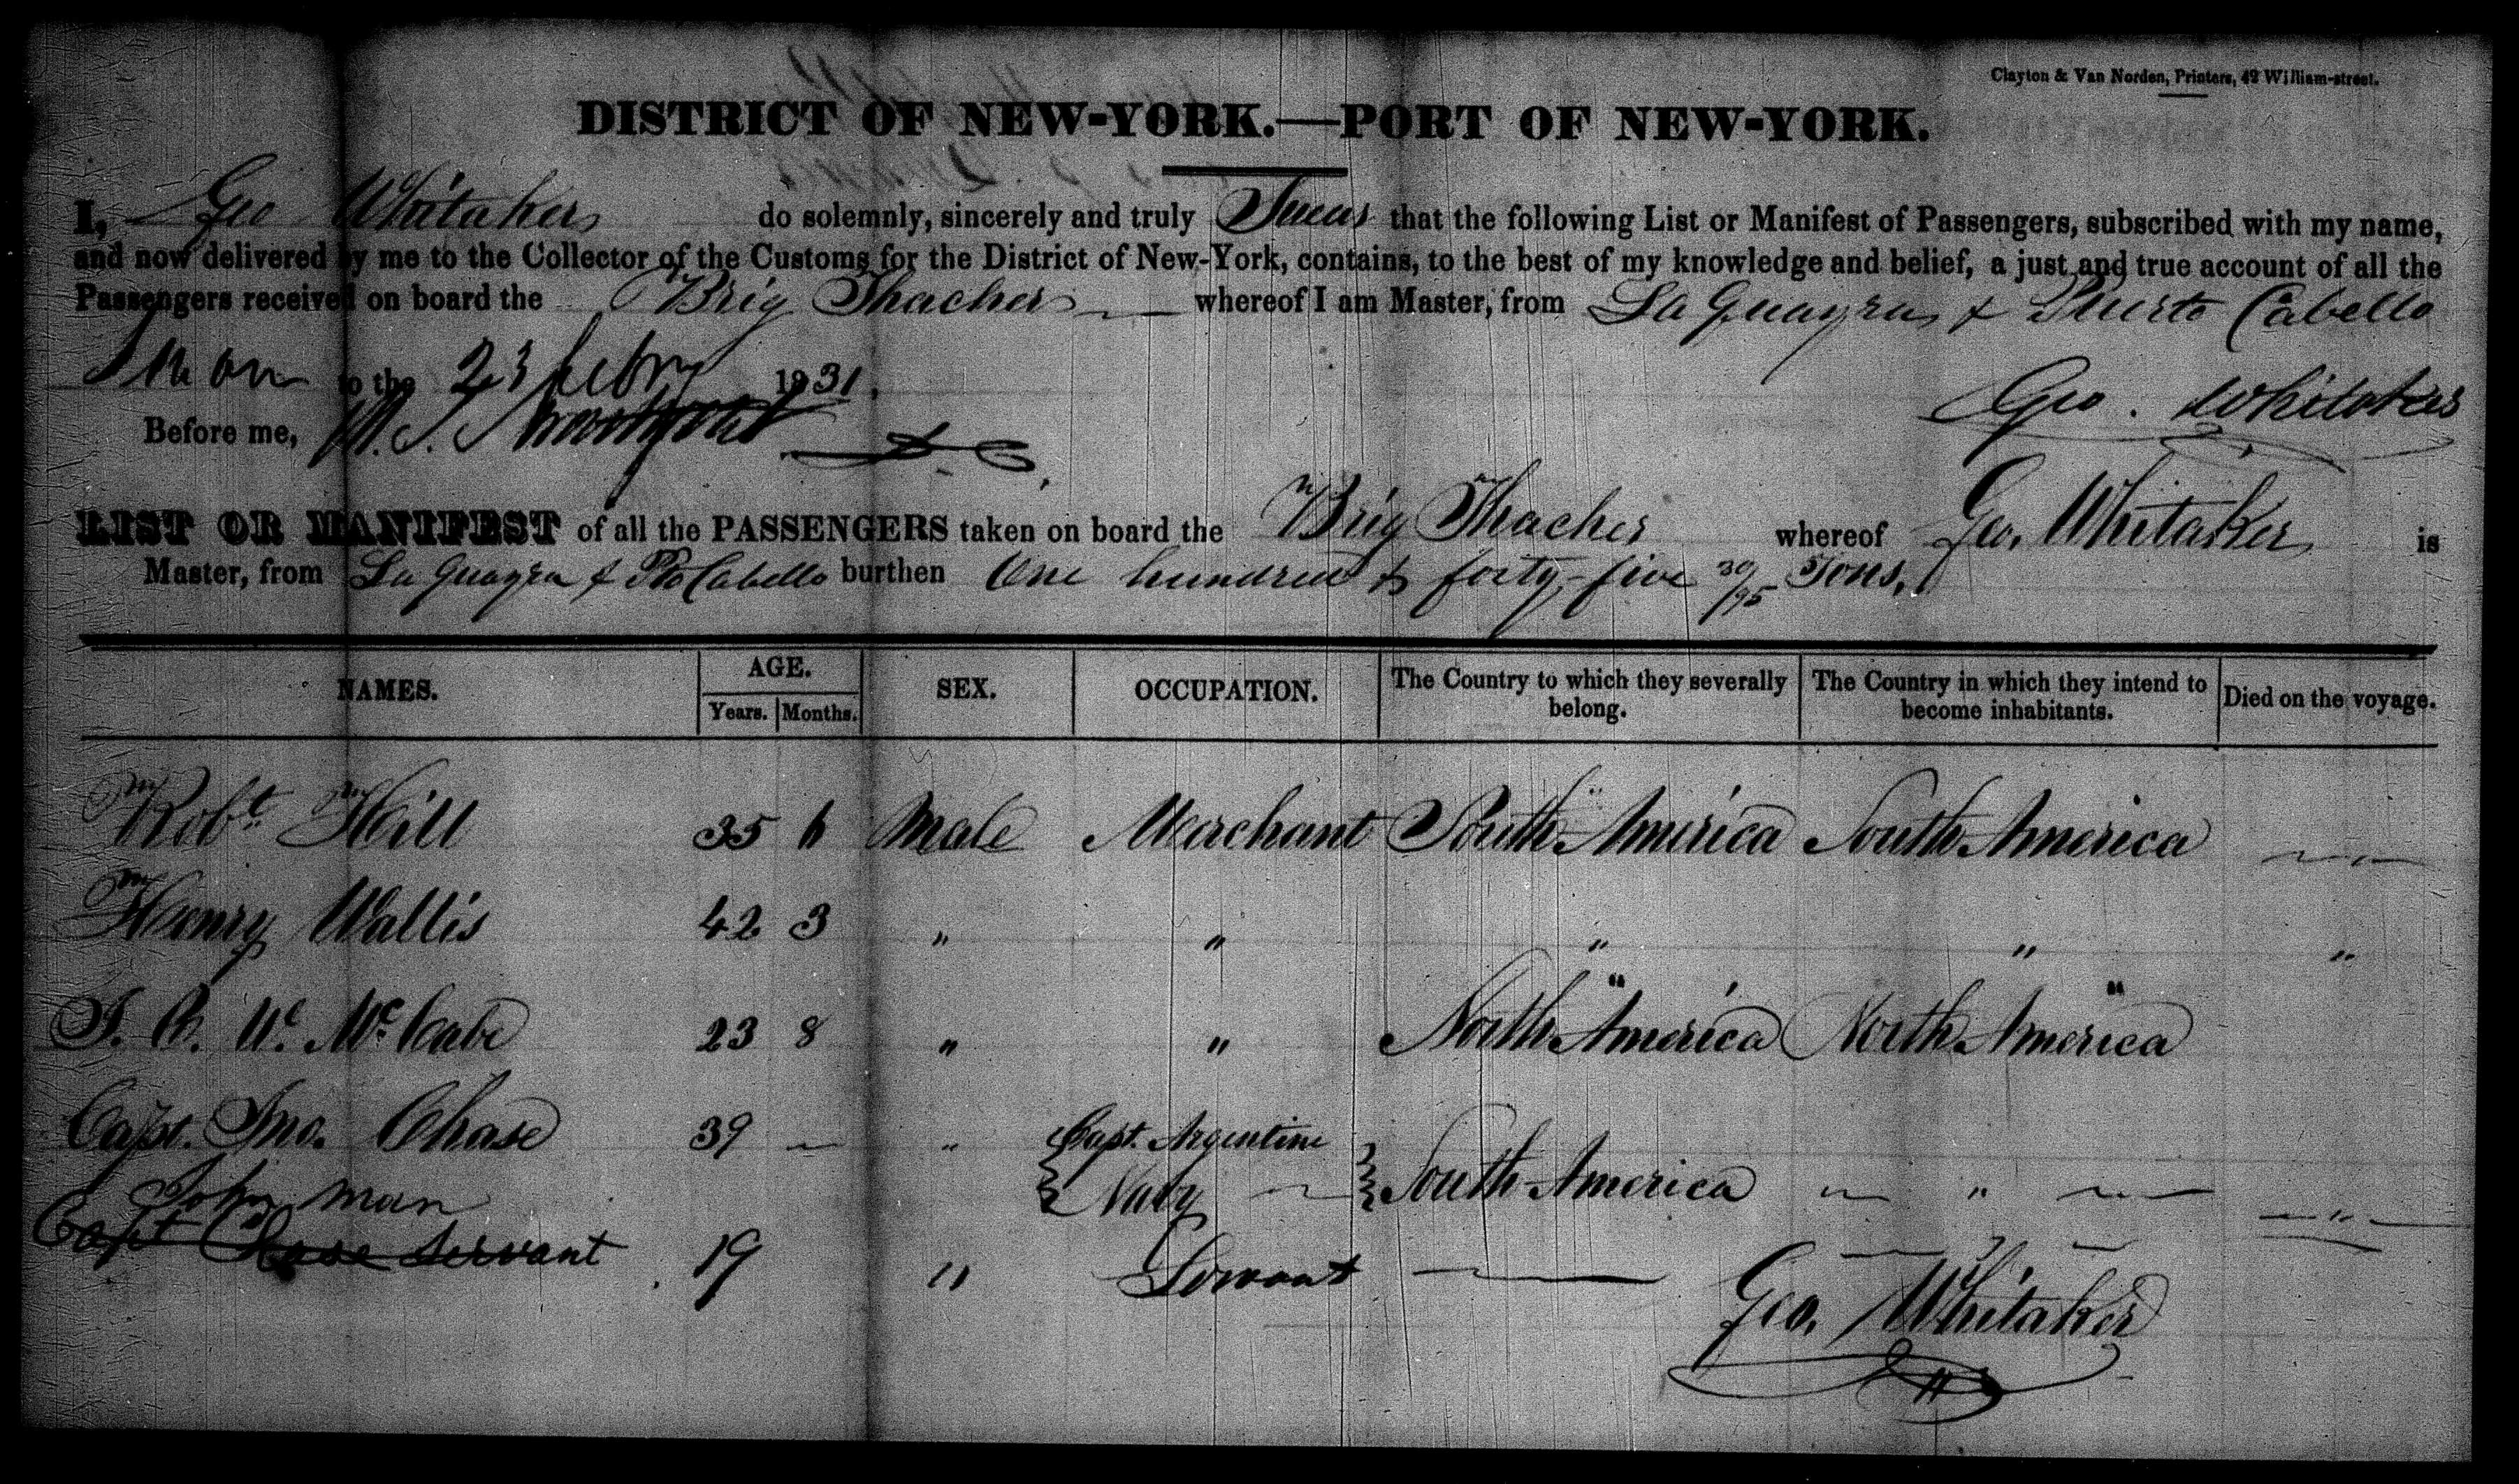 Clayton & Van Norden, Printers, 42 William-street.
DISTRICT OF NEW-YORK.—PORT OF NEW-YORK.
I, Geo Whitaker do solemnly, sincerely and truly Swear that the following List or Manifest of Passengers, subscribed with my name,
and now delivered by me to the Collector of the Customs for the District of New-York, contains, to the best of my knowledge and belief, a just and true account of all the
Passengers received on board the Brig Thacher whereof I am Master, from La Guayra & Puerto Cabello
Sworn to the 23 febry 1831.
Geo. Whitaker
Before me,
LIST OR MANIFEST of all the PASSENGERS taken on board the Brig Thacher whereof Geo. Whitaker is
Master, from La Guayra & Pto Cabello burthen One hundred & forty-five 30/95 Tons.
NAMES. AGE. Years. Months. SEX. OCCUPATION. The Country to which they severally belong. The Country in which they intend to become inhabitants. Died on the voyage.
Robt. Hill 35 6 Male Merchant South America South America
Henry Wallis 42 3 " " " " "
J. R. Wc. McCabe 23 8 " " North America North America
Capt. Jno. Chase 39 — " Capt. Argentine Navy South America "
John man
Capt Chase Servant 19 " Servant —
Geo. Whitaker